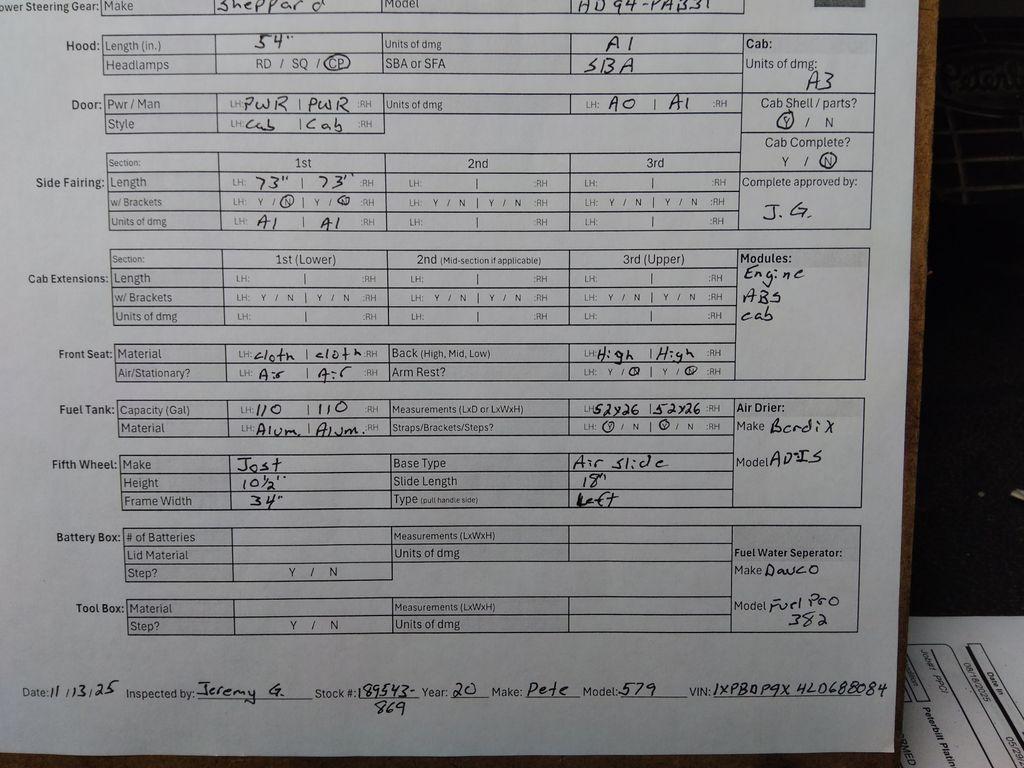 ower Steering Gear: Make Sheppard Model HD94-PAB31
Hood: Length (in.) 54" Units of dmg A1 Cab:
Headlamps RD / SQ / CP SBA or SFA SBA Units of dmg: A3
Door: Pwr / Man LH: PWR | PWR :RH Units of dmg LH: A0 | A1 :RH Cab Shell / parts?
Style LH: Cab | Cab :RH Y / N
Cab Complete?
Y / N
Section: 1st 2nd 3rd
Side Fairing: Length LH: 73" | 73" :RH LH: | :RH LH: | :RH Complete approved by:
w/ Brackets LH: Y / N | Y / N :RH LH: Y / N | Y / N :RH LH: Y / N | Y / N :RH J.G.
Units of dmg LH: A1 | A1 :RH LH: | :RH LH: | :RH
Section: 1st (Lower) 2nd (Mid-section if applicable) 3rd (Upper) Modules:
Cab Extensions: Length LH: | :RH LH: | :RH LH: | :RH Engine
w/ Brackets LH: Y / N | Y / N :RH LH: Y / N | Y / N :RH LH: Y / N | Y / N :RH ABS
Units of dmg LH: | :RH LH: | :RH LH: | :RH cab
Front Seat: Material LH: cloth | cloth :RH Back (High, Mid, Low) LH: High | High :RH
Air/Stationary? LH: Air | Air :RH Arm Rest? LH: Y / N | Y / N :RH
Fuel Tank: Capacity (Gal) LH: 110 | 110 :RH Measurements (LxD or LxWxH) LH: 52x26 | 52x26 :RH Air Drier:
Material LH: Alum. | Alum. :RH Straps/Brackets/Steps? LH: Y / N | Y / N :RH Make Bendix
Fifth Wheel: Make Jost Base Type Air slide Model AD-IS
Height 10½" Slide Length 18"
Frame Width 34" Type (pull handle side) Left
Battery Box: # of Batteries Measurements (LxWxH)
Lid Material Units of dmg Fuel Water Seperator:
Step? Y / N Make Davco
Tool Box: Material Measurements (LxWxH) Model Fuel Pro
Step? Y / N Units of dmg 382
Date: 11/13/25 Inspected by: Jeremy G. Stock #: 189543-869 Year: 20 Make: Pete Model: 579 VIN: 1XPBDP9X4LD688084
Job#1 PPG1
Date In
08/18/2025
Peterbilt Platin